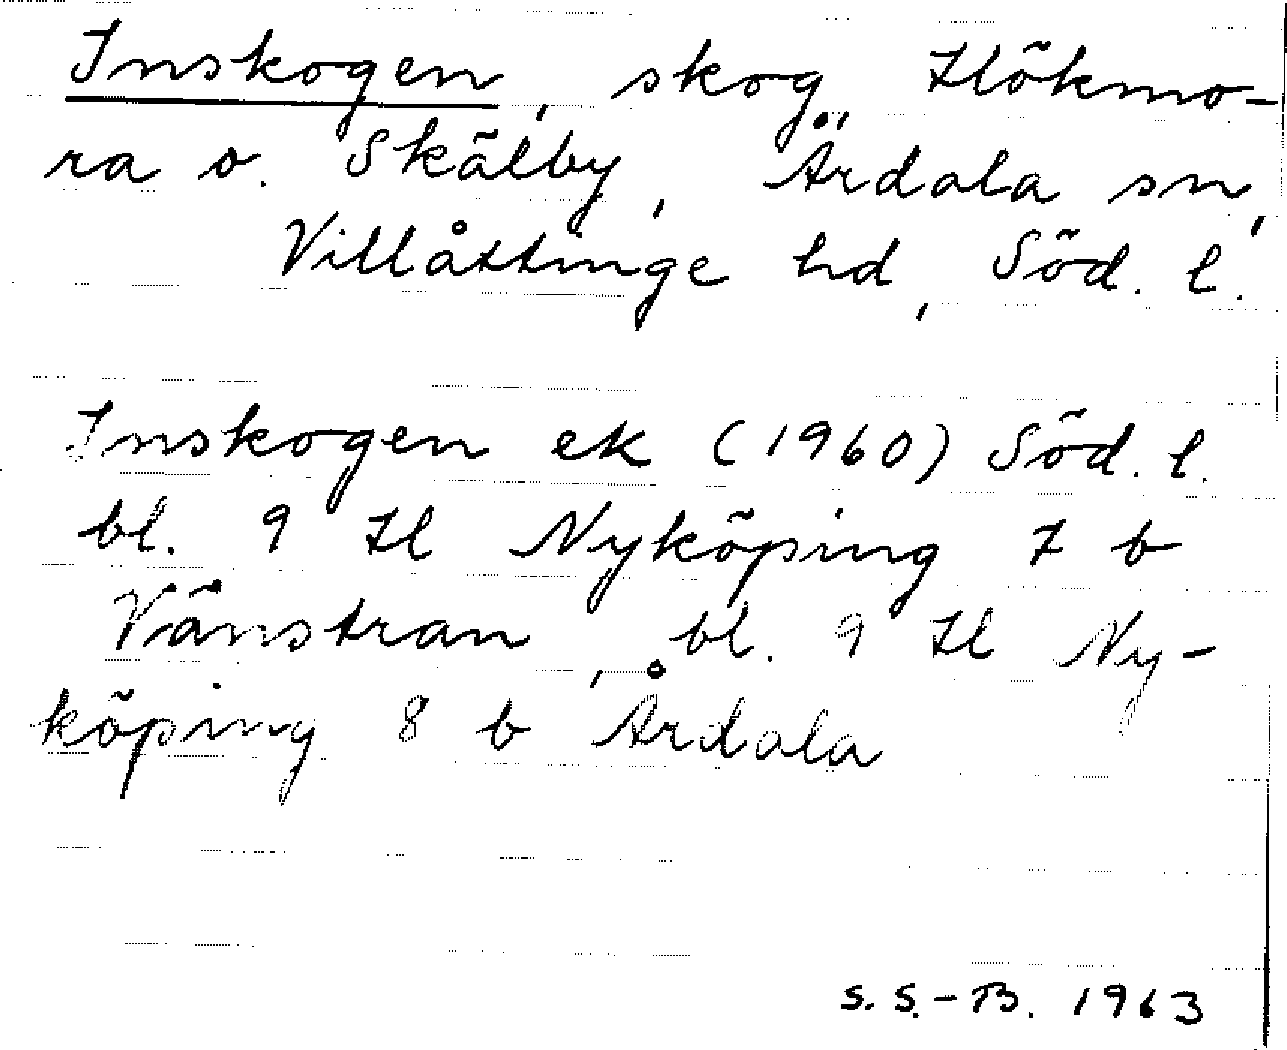 Inskogen, skog, Hökmo-
ra o. Skälby, Ärdala sn,
Villåttinge hd, Söd. l.
Inskogen ek (1960) Söd. l.
bl. 9 H Nyköping 7 b
Vänstran, bl. 9 H Ny-
köping 8 b Årdala
S. S.-B. 1963